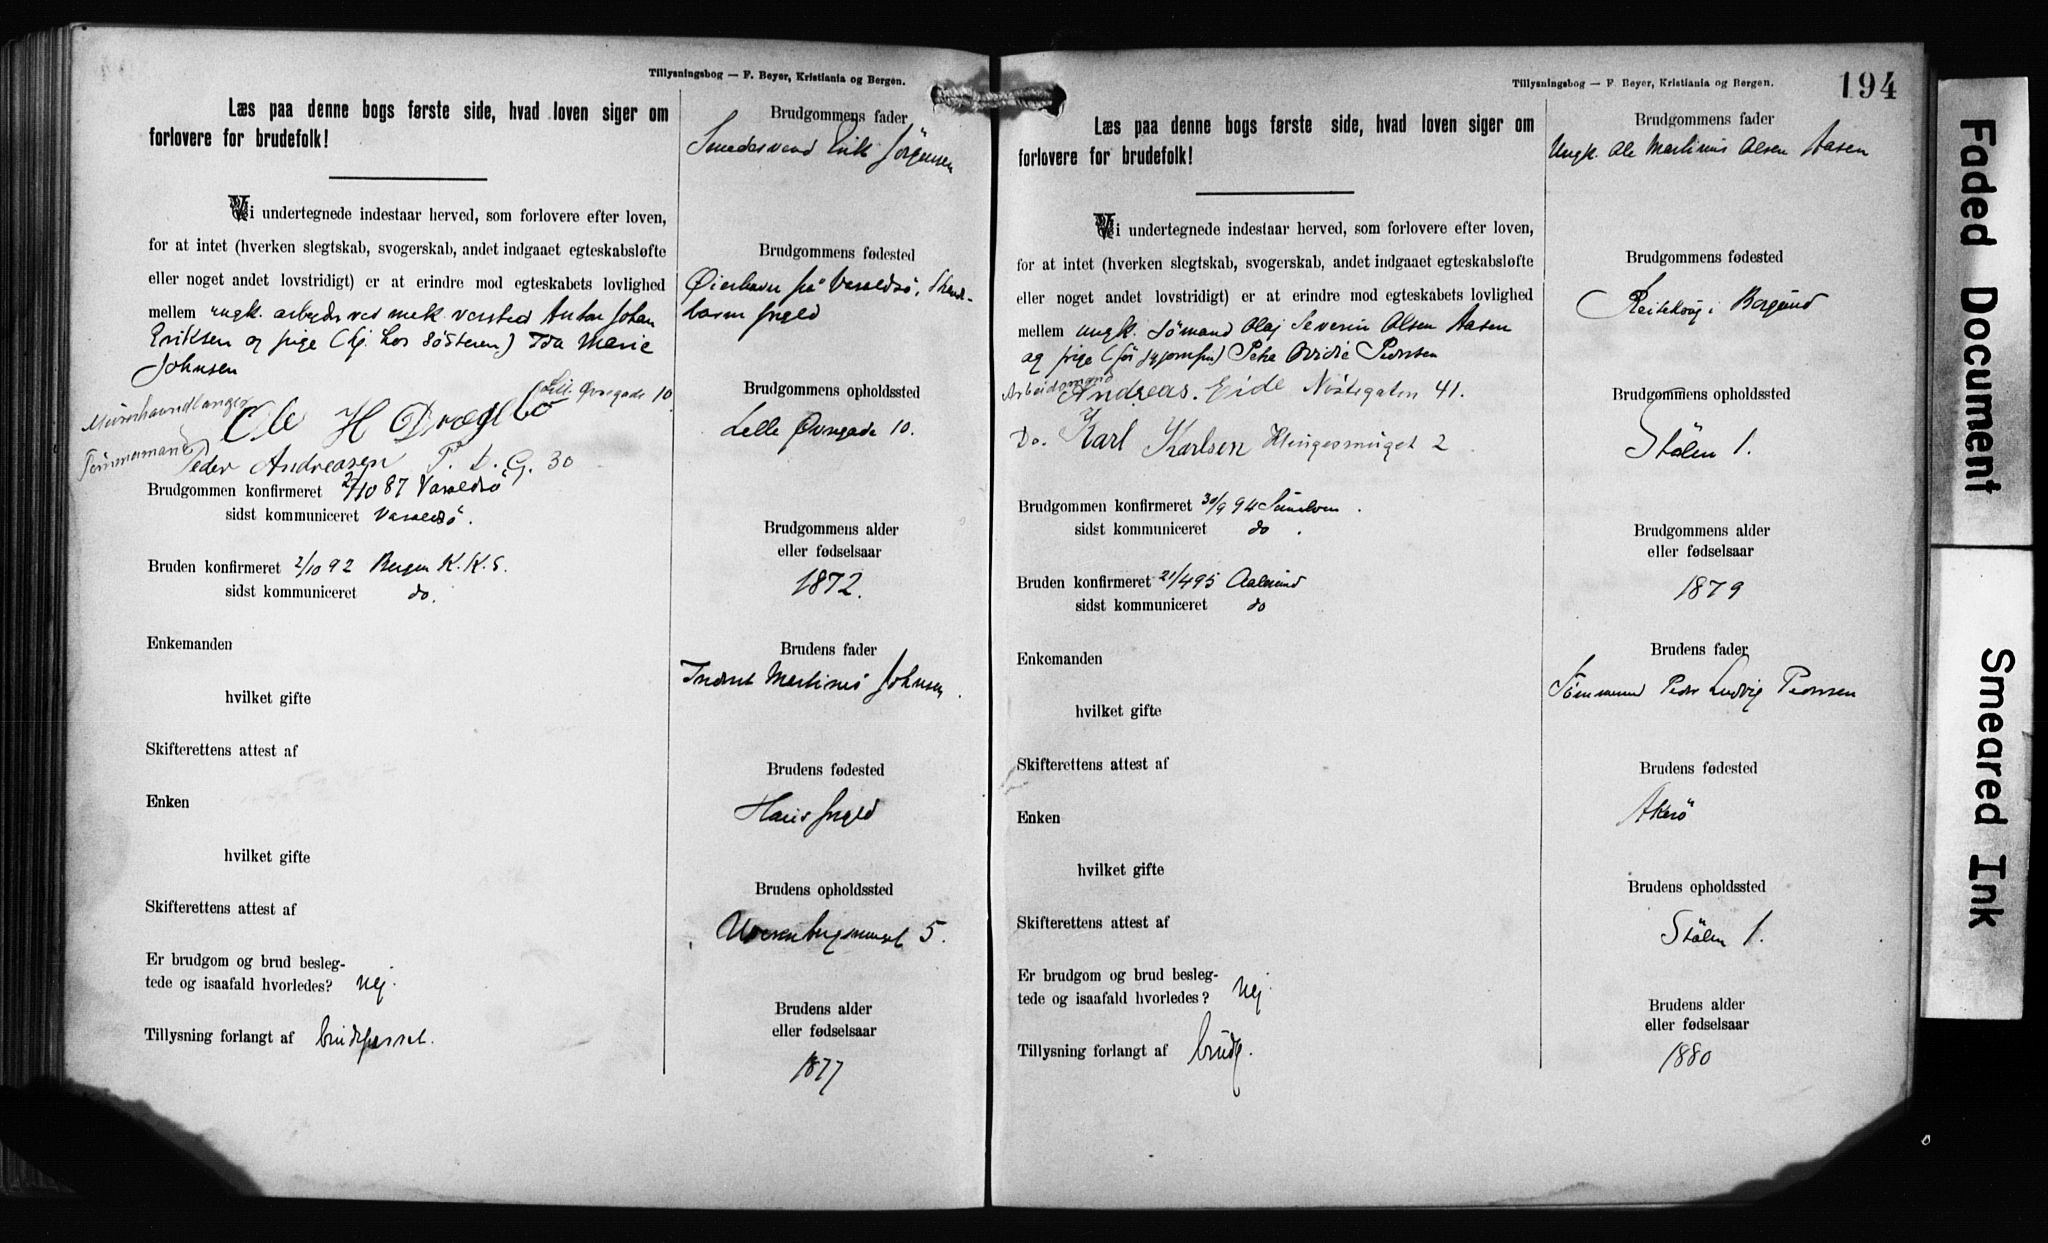 Tillysningsbog — F. Beyer, Kristiania og Bergen.
Læs paa denne bogs første side, hvad loven siger om
forlovere for brudefolk!
Vi undertegnede indestaar herved, som forlovere efter loven,
for at intet (hverken slegtskab, svogerskab, andet indgaaet egteskabsløfte
eller noget andet lovstridigt) er at erindre mod egteskabets lovlighed
mellem ungk. arbeyder ved mek. versted Anton Johan
Eriksen og pige (hj. hos søsteren) Ida Marie
Johnsen
Ole H Lille Øvregade 10
Tømmermand Peder Andreasen 30
Brudgommen konfirmeret 2/10 87 Varaldsö
sidst kommuniceret Varaldsö.
Bruden konfirmeret 2/10 92 Bergen K.K.S.
sidst kommuniceret do.
Enkemanden
hvilket gifte
Skifterettens attest af
Enken
hvilket gifte
Skifterettens attest af
Er brudgom og brud besleg-
tede og isaafald hvorledes? Nej.
Tillysning forlangt af brudeparret.
Brudgommens fader
Smedesvend Erik Jörgensen
Brudgommens fødested
på Varaldsö,
Brudgommens opholdssted
Lille Øvregade 10.
Brudgommens alder
eller fødselsaar
1872.
Brudens fader
Martinus Johnsen.
Brudens fødested
Haus
Brudens opholdssted
5.
Brudens alder
eller fødselsaar
1877
Tillysningsbog — F. Beyer, Kristiania og Bergen.
194
Læs paa denne bogs første side, hvad loven siger om
forlovere for brudefolk!
Vi undertegnede indestaar herved, som forlovere efter loven,
for at intet (hverken slegtskab, svogerskab, andet indgaaet egteskabsløfte
eller noget andet lovstridigt) er at erindre mod egteskabets lovlighed
mellem ungk. sömand Olaf Severin Olsen Aasen
og pige Petra Ovidie Pedersen
Arbeidsmand Andreas. Eide Nöstegaten 41.
Do. Karl Karlsen Klingesmuget 2
Brudgommen konfirmeret 30/9 94 Sunelven.
sidst kommuniceret do.
Bruden konfirmeret 21/4 95 Aalesund
sidst kommuniceret do
Enkemanden
hvilket gifte
Skifterettens attest af
Enken
hvilket gifte
Skifterettens attest af
Er brudgom og brud besleg-
tede og isaafald hvorledes? Nej
Tillysning forlangt af brudg.
Brudgommens fader
Ungk. Ole Martinus Olsen Aasen
Brudgommens fødested
i Borgund
Brudgommens opholdssted
Stölen 1.
Brudgommens alder
eller fødselsaar
1879
Brudens fader
Tömmermand Peder Ludvig Pedersen
Brudens fødested
Akerö
Brudens opholdssted
Stölen 1.
Brudens alder
eller fødselsaar
1880
Faded Document
Smeared Ink